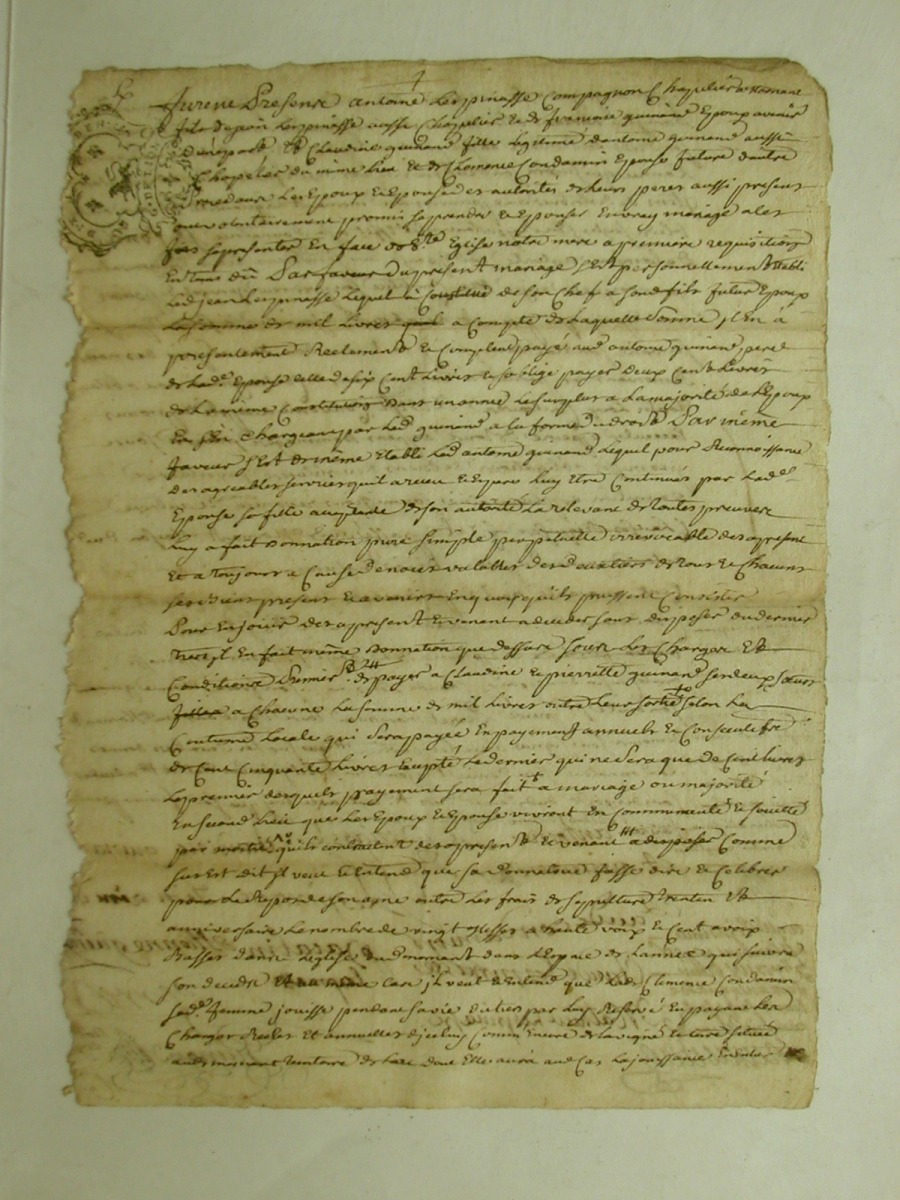 Furent Presents antoine Lespinasse Compagnon Chapelier
fils de jean Lespinasse aussi Chapelier et de francoise guinand Epoux avenir
d'une part Et Claudine guinand fille Legitime d'antoine guinand aussi
Chapelier du meme lieu Et de Clemence Condamin Epouse future d'autre
Lesquels Epoux et Epouse de autorités de leurs peres aussi present
ont volontairement promis se prendre et Epouser En vray mariage a les
fois se presenter En face de Ste Eglise notre mere a premiere requisition
En tems du Par faveur du present mariage s'Est personnellement Etabli
Led jean Lespinasse Lequel a Constitué de son Chef a sond fils futur Epoux
La somme de mil Livres a Compte de Laquelle Somme jl En a
presentement Reelement et Comptant payé aud antoine guinand pere
de Lad.e Epouse celle de six Cent Livres et s'oblige payer deux Cent Livres
de La meme Constitution dans un année Le surplus a La majorité de L'Epoux
En Chargeant par Led guinand a la forme du droit Par même
faveur s'Est de même Etabli Led antoine guinand Lequel pour Reconnoissance
des agreables services qu'il a recu et Espere Luy Etre Continués par Lad.e
Epouse sa fille acceptante de son autorité La relevant de toutes preuves
Luy a fait Donnation pure simple perpetuelle irrevocable des a present
Et a Toujours a Cause de noces valables de de tous et Chacuns
ses biens present et avenir En quoy qu'ils puissent Consister
Pour En jouir des a present Et venant a deceder sans disposer du dernier
jl En fait même Donnation que dessus sous Les Charges et
Conditions Premier.t de payer a Claudine et pierrette guinand ses deux soeurs
a Chacune La somme de mil Livres outre Leur selon La
Coutume Locale qui Sera payée En payement annuels Et Consecutifs
de Cent Cinquante Livres Excepté Le dernier qui ne Sera que de Cent livres
Le premier desquels payement sera fait a mariage ou majorité
En second Lieu que Les Epoux et Epouse vivront En Communauté et société
par moitié qu'ils contractent des a present Et venant a disposer Comme
sus Est dit jl veut et Entend que sa donnataire fasse dire et Celebrer
pour Le Repos de son ame outre Les frais de sepulture Et
anniversaire Le nombre de vingt Messes a haute voix et Cent a voix
Basses dans L'Eglise dud mornant dans L'Espace de L'année qui suivra
son decedes Et au même Cas jl veut et Entend que Lad Clemence Condamin
sad.e femme jouisse pendant sa vie par Luy Reservé En payant Les
Charges Reeles Et annuelles d'jcelluy Comm Encore de la vigne et terre situées
aud mornant territoire de dont Elle aura aud Cas La jouissance Entiere